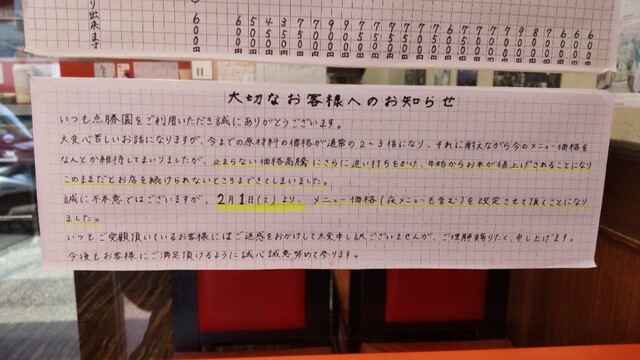 り出来ます
6 6 5 4 3 7 7 9 9 7
0 0 0 0 0 0 0 0 0 0
円 円 円 円 円 円 円 円 円 円
大切なお客様へのお知らせ
いつも点勝園をご利用いただき誠にありがとうございます。
大変心苦しいお話になりますが、今までの原材料の価格が通常の2〜3倍になり、それに耐えながら今のメニュー価格を
なんとか維持してまいりましたが、止まらない価格高騰にさらに追い打ちをかけ、年始からお米が値上げされることになり
このままだとお店を続けられないところまできてしまいました。
誠に不本意ではございますが、2月1日(土)より、メニュー価格(夜メニューも含む)を改定させて頂くことになり
ました。
いつもご愛顧頂いているお客様にはご迷惑をおかけして大変申し訳ございませんが、ご理解賜りたく、申し上げます。
今後もお客様にご満足頂けるように誠心誠意努めて参ります。